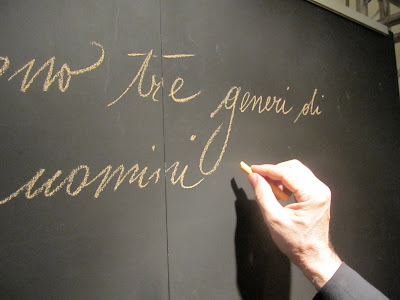 eno trè generi di
uomini